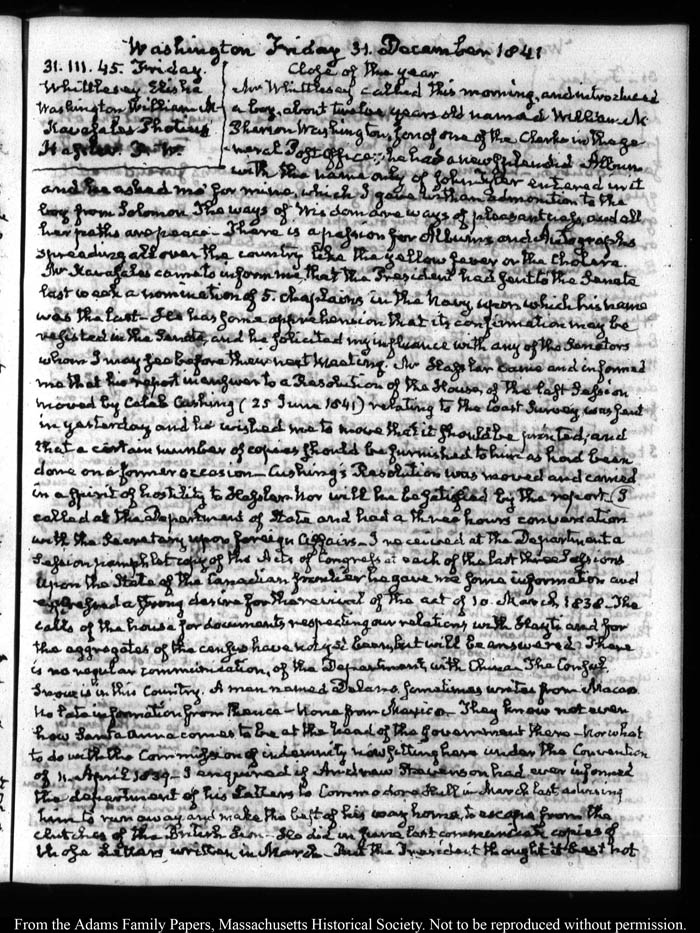 Washington Friday 31. December 1841
31. III. 45. Friday.
Whittlesey Elisha
Washington William M.
Kavasales Photius
Hassler F. R.
Close of the year
Mr Whittlesey called this morning, and introduced
a boy, about twelve years old named William M
Washington, son of one of the Clerks in the ge-
neral Post Office; he had a new splendid Album
with the name only of John Tyler entered in it
and he asked me for mine, which I gave with an admonition to the
boy from Solomon. The ways of Wisdom are ways of pleasantness, and all
her paths are peace— There is a passion for Albums and Autographs
spreading all over the country like the yellow fever or the Cholera.
Mr Kavasales came to inform me, that the President had sent to the Senate
last week a nomination of 5. Chaplains in the Navy upon which his name
was the last— He has some apprehension that its confirmation may be
resisted in the Senate, and he solicited my influence with any of the Senators
whom I may see before their next Meeting. Mr Hassler came and informed
me that his report in answer to a Resolution of the House, of the last Session
moved by Caleb Cushing (25 June 1841) relating to the Coast Survey was sent
in yesterday and he wished me to move that it should be printed, and
that a certain number of copies should be furnished to him as had been
done on a former occasion— Cushing's Resolution was moved and carried
in a spirit of hostility to Hassler. Nor will he be satisfied by the report. I
called at the Department of State and had a three hours conversation
with the Secretary upon foreign Affairs— I received at the Department a
Session pamphlet copy of the Acts of Congress at each of the last three Sessions
Upon the State of the Canadian frontier he gave me some information and
expressed a strong desire for the revival of the act of 10. March 1838— The
calls of the house for documents respecting our relations with Hayti and for
the aggregates of the census have not yet been, but will be answered. There
is no regular communication, of the Department, with China. The Consul
Snow is in this Country. A man named Delano, sometimes writes from Macao.
No late information from thence— None from Mexico— They know not even
how Santa Anna comes to be at the head of the Government there— Nor what
to do with the Commission of indemnity now sitting here under the Convention
of 11. April 1839— I enquired if Andrew Stevenson had ever informed
the department of his Letters to Commodore Hull in March last advising
him to run away and make the best of his way home, to escape from the
clutches of the British Lion— He did in June last communicate copies of
those Letters, written in March— But the President thought it best not
From the Adams Family Papers, Massachusetts Historical Society. Not to be reproduced without permission.